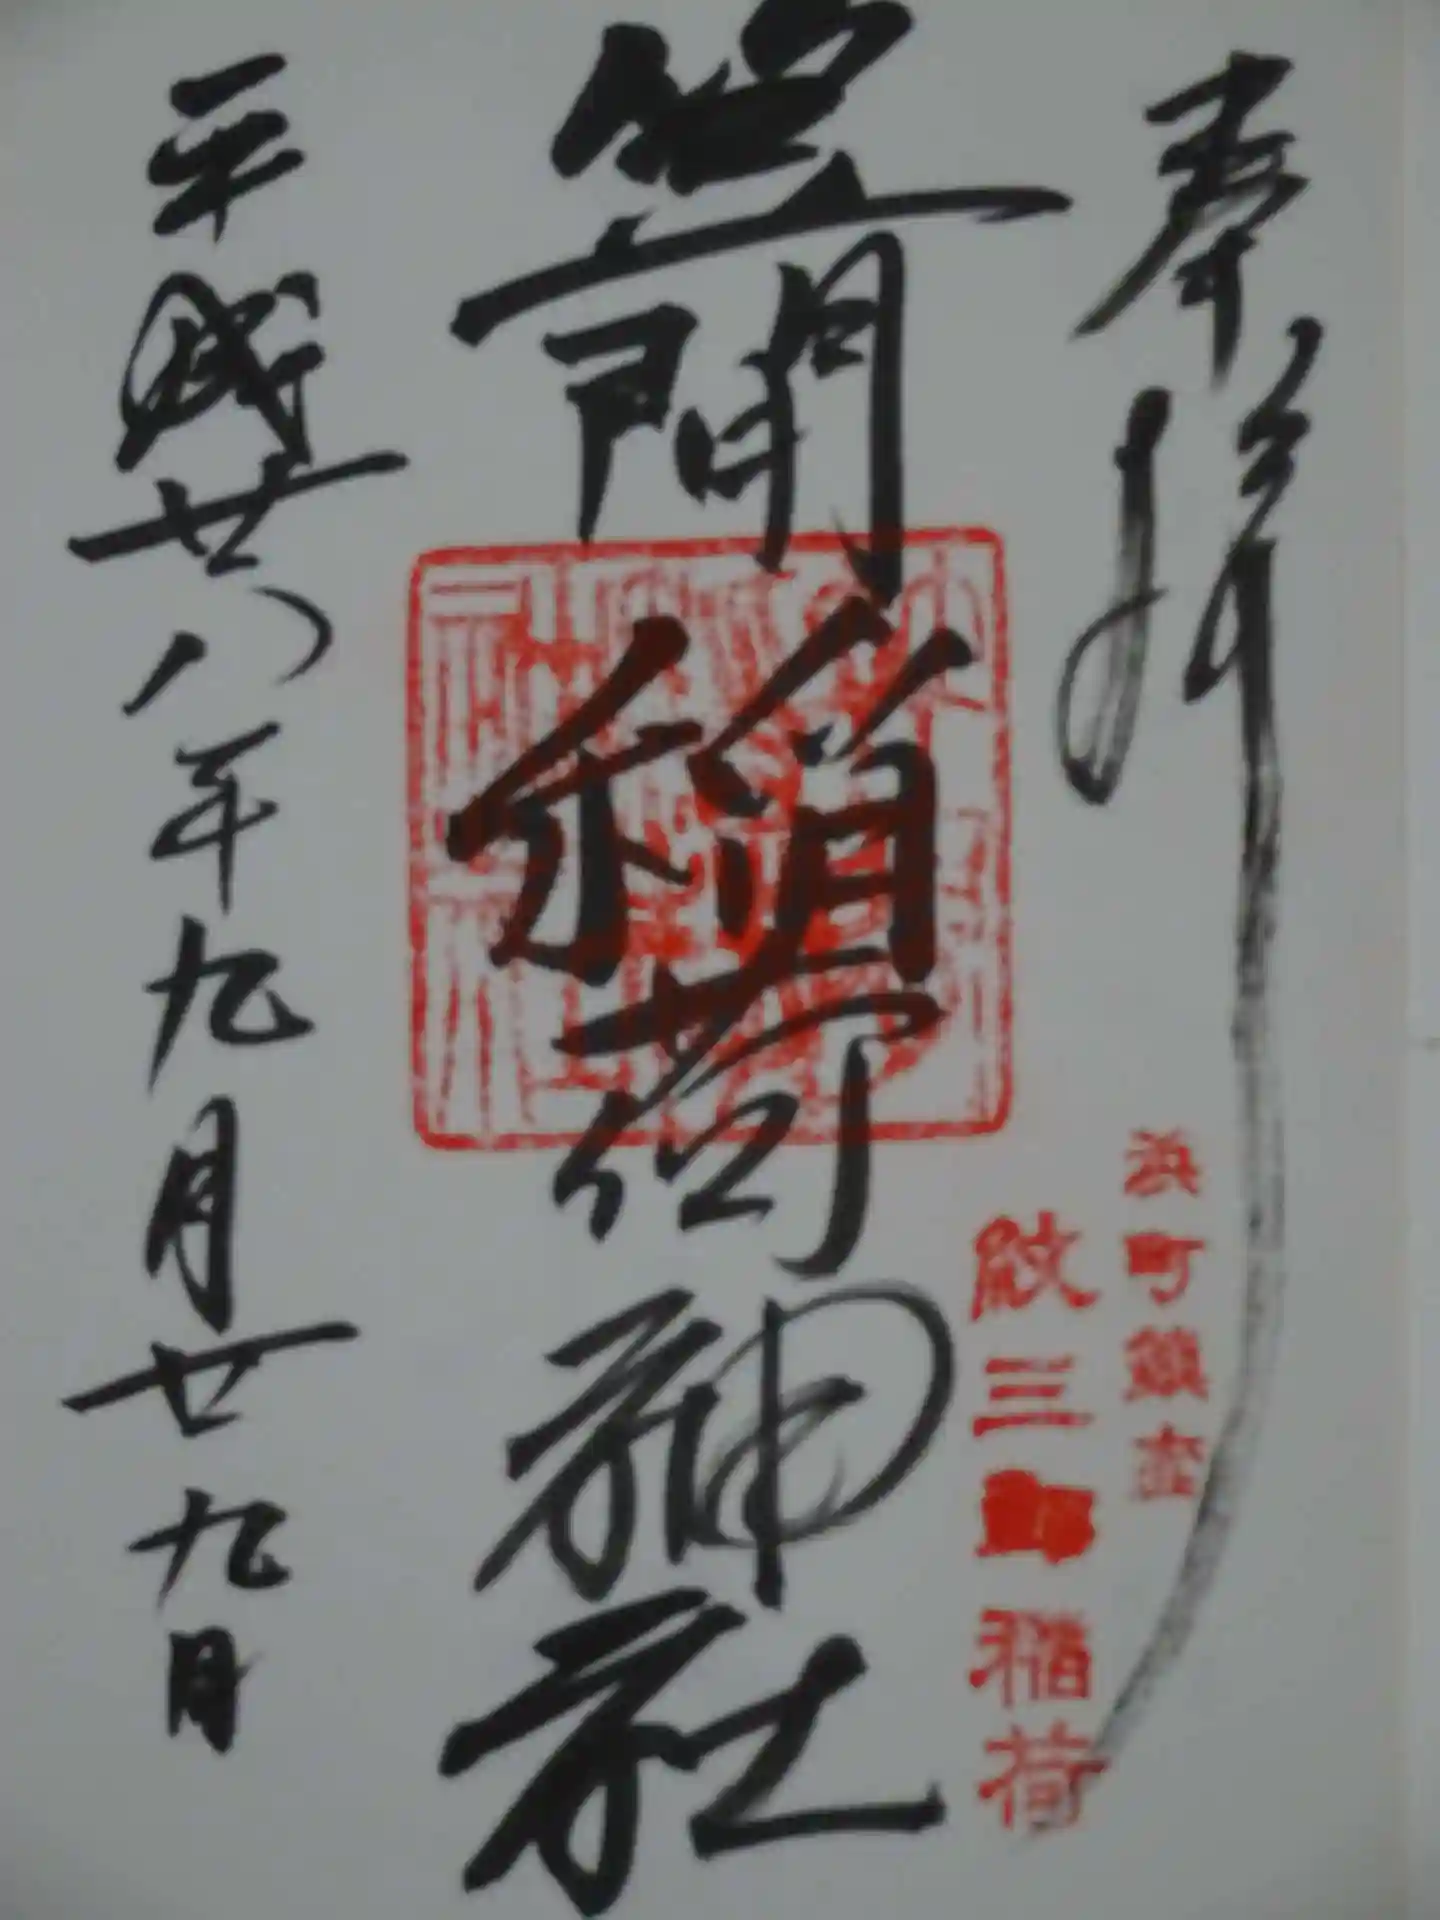 奉拝
浜町鎮座
紋三郎稲荷
笠間稲荷神社
平成廿八年九月廿九日